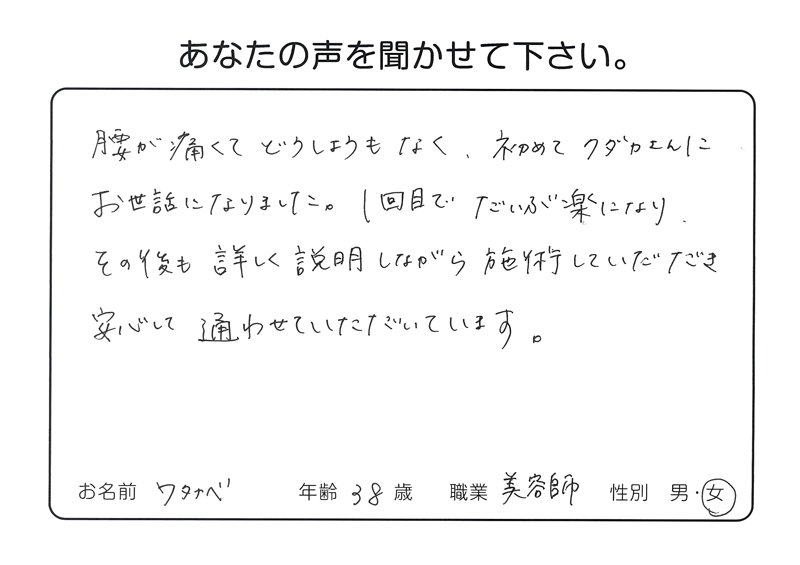 あなたの声を聞かせて下さい。
腰が痛くてどうしようもなく、初めてクダカさんに
お世話になりました。1回目でだいぶ楽になり、
その後も詳しく説明しながら施術していただき
安心して通わせていただいています。
お名前 ワタナベ 年齢 38 歳 職業 美容師 性別 男・女